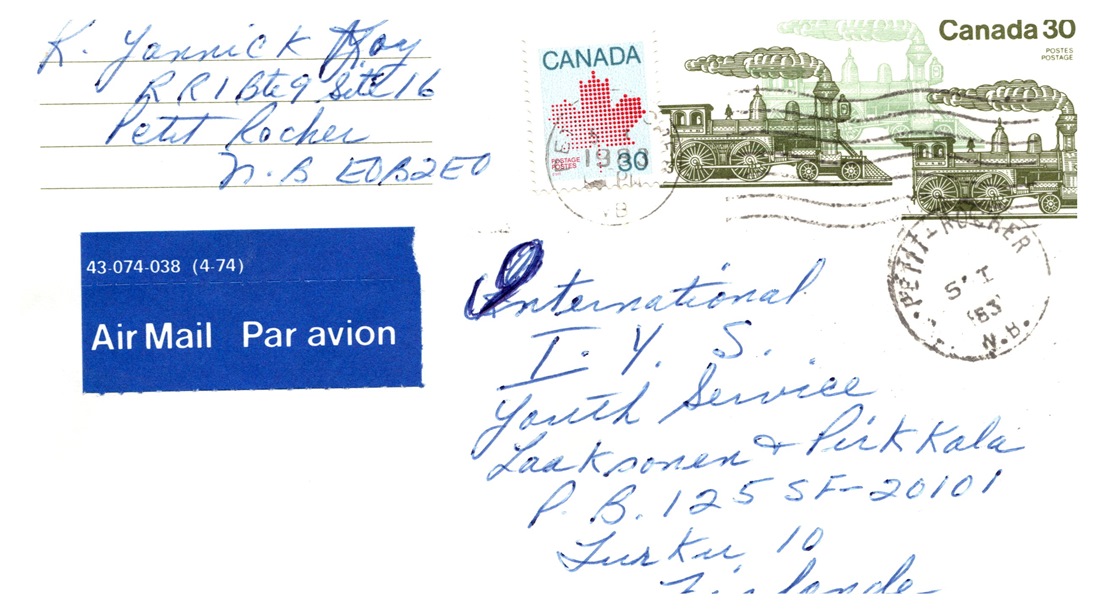 K. Yannick Roy
RR1 Bte 9 Site 16
Petit Rocher
N.B E0B2E0
CANADA
POSTAGE
POSTES
30
Canada 30
POSTES
POSTAGE
PETIT-ROCHER
83
N.B.
43-074-038 (4-74)
Air Mail Par avion
International
I. Y. S.
Youth Service
Laaksonen & Pirkkala
P. B. 125 SF-20101
Turku 10
Finlande